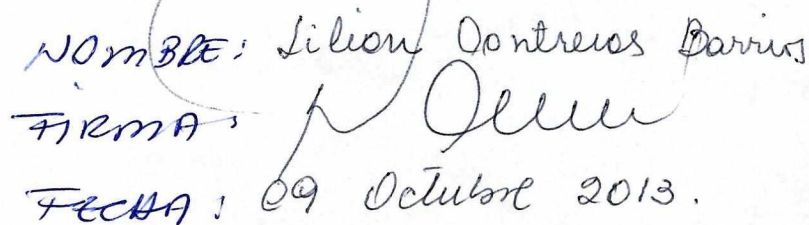 NOMBRE: Lilian Contreras Barrios
FIRMA:
FECHA: 09 Octubre 2013.